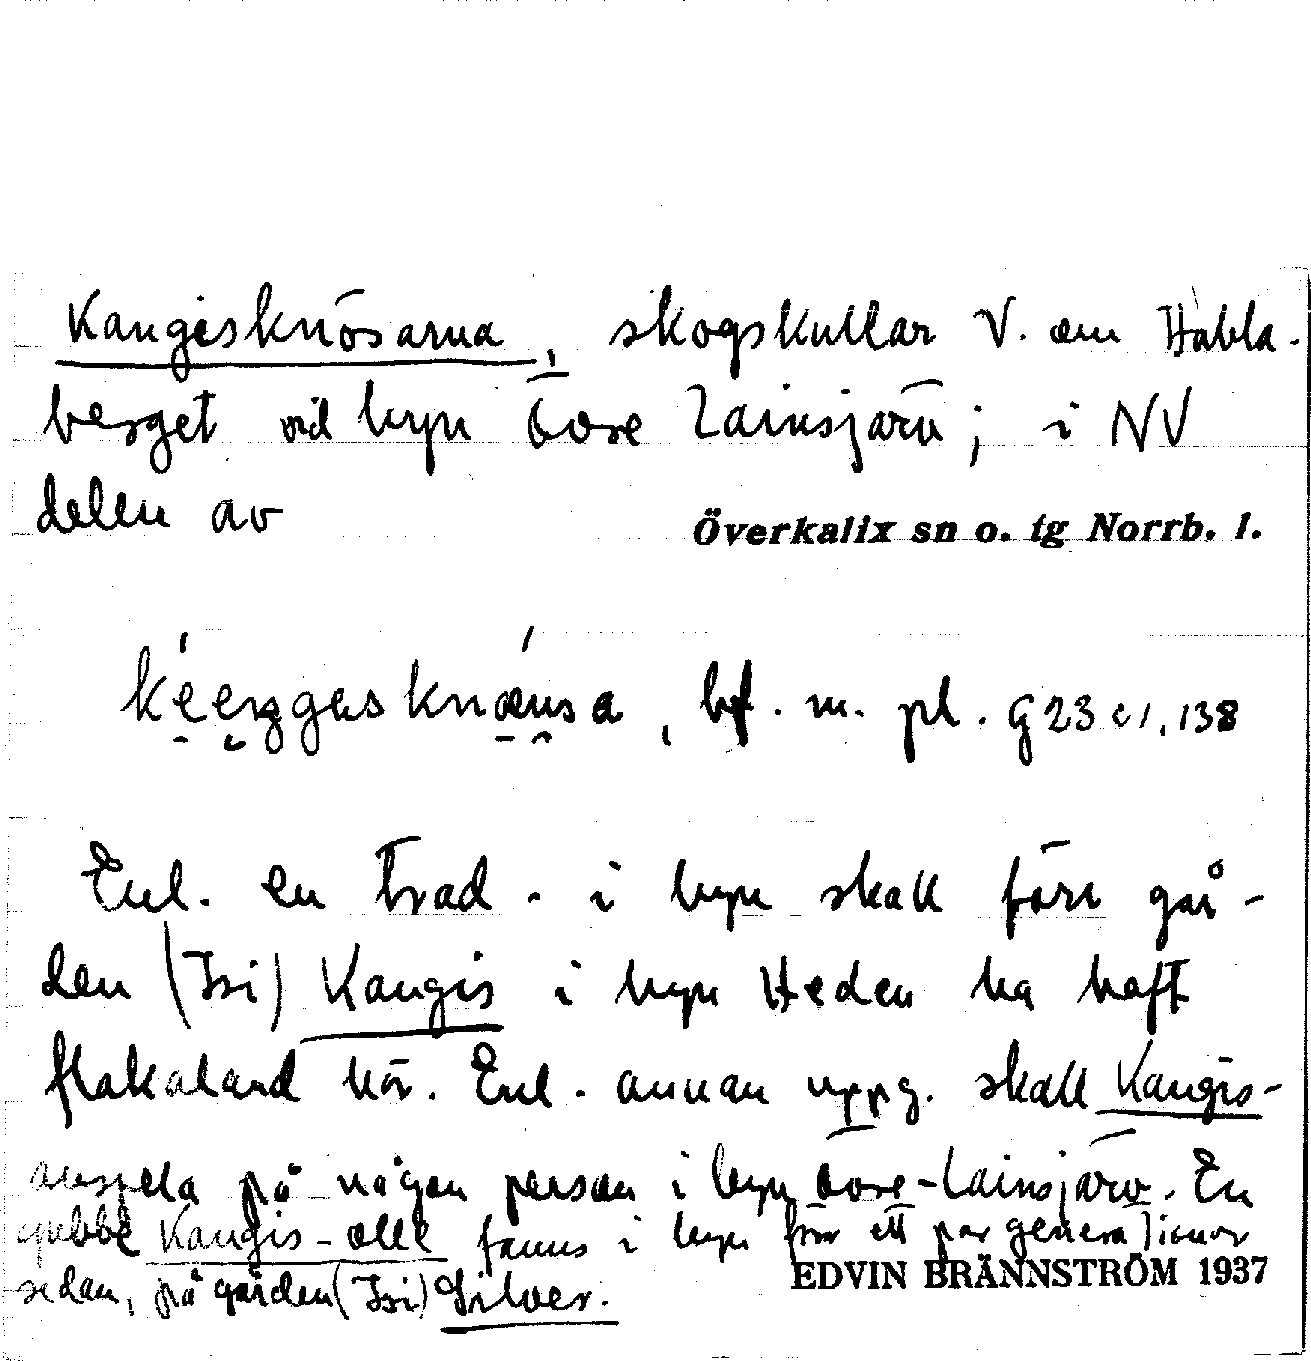 Kangisknösarna, skogskullar V. om Habla-
berget vid byn Övre Lainsjärv; i NV
delen av
Överkalix sn o. tg Norrb. l.
bf. m. pl. G 23 c 1, 138
Enl. en trad. i byn skall förr går-
den (Isi) Kangis i byn Heden ha haft
flakaland här. Enl. annan uppg. skall Kangis-
anspela på någon person i byn Övre-Lainsjärv. En
gubbe Kangis-Olle fanns i byn för ett par generationer
sedan, på gården (Isi) Silver.
EDVIN BRÄNNSTRÖM 1937